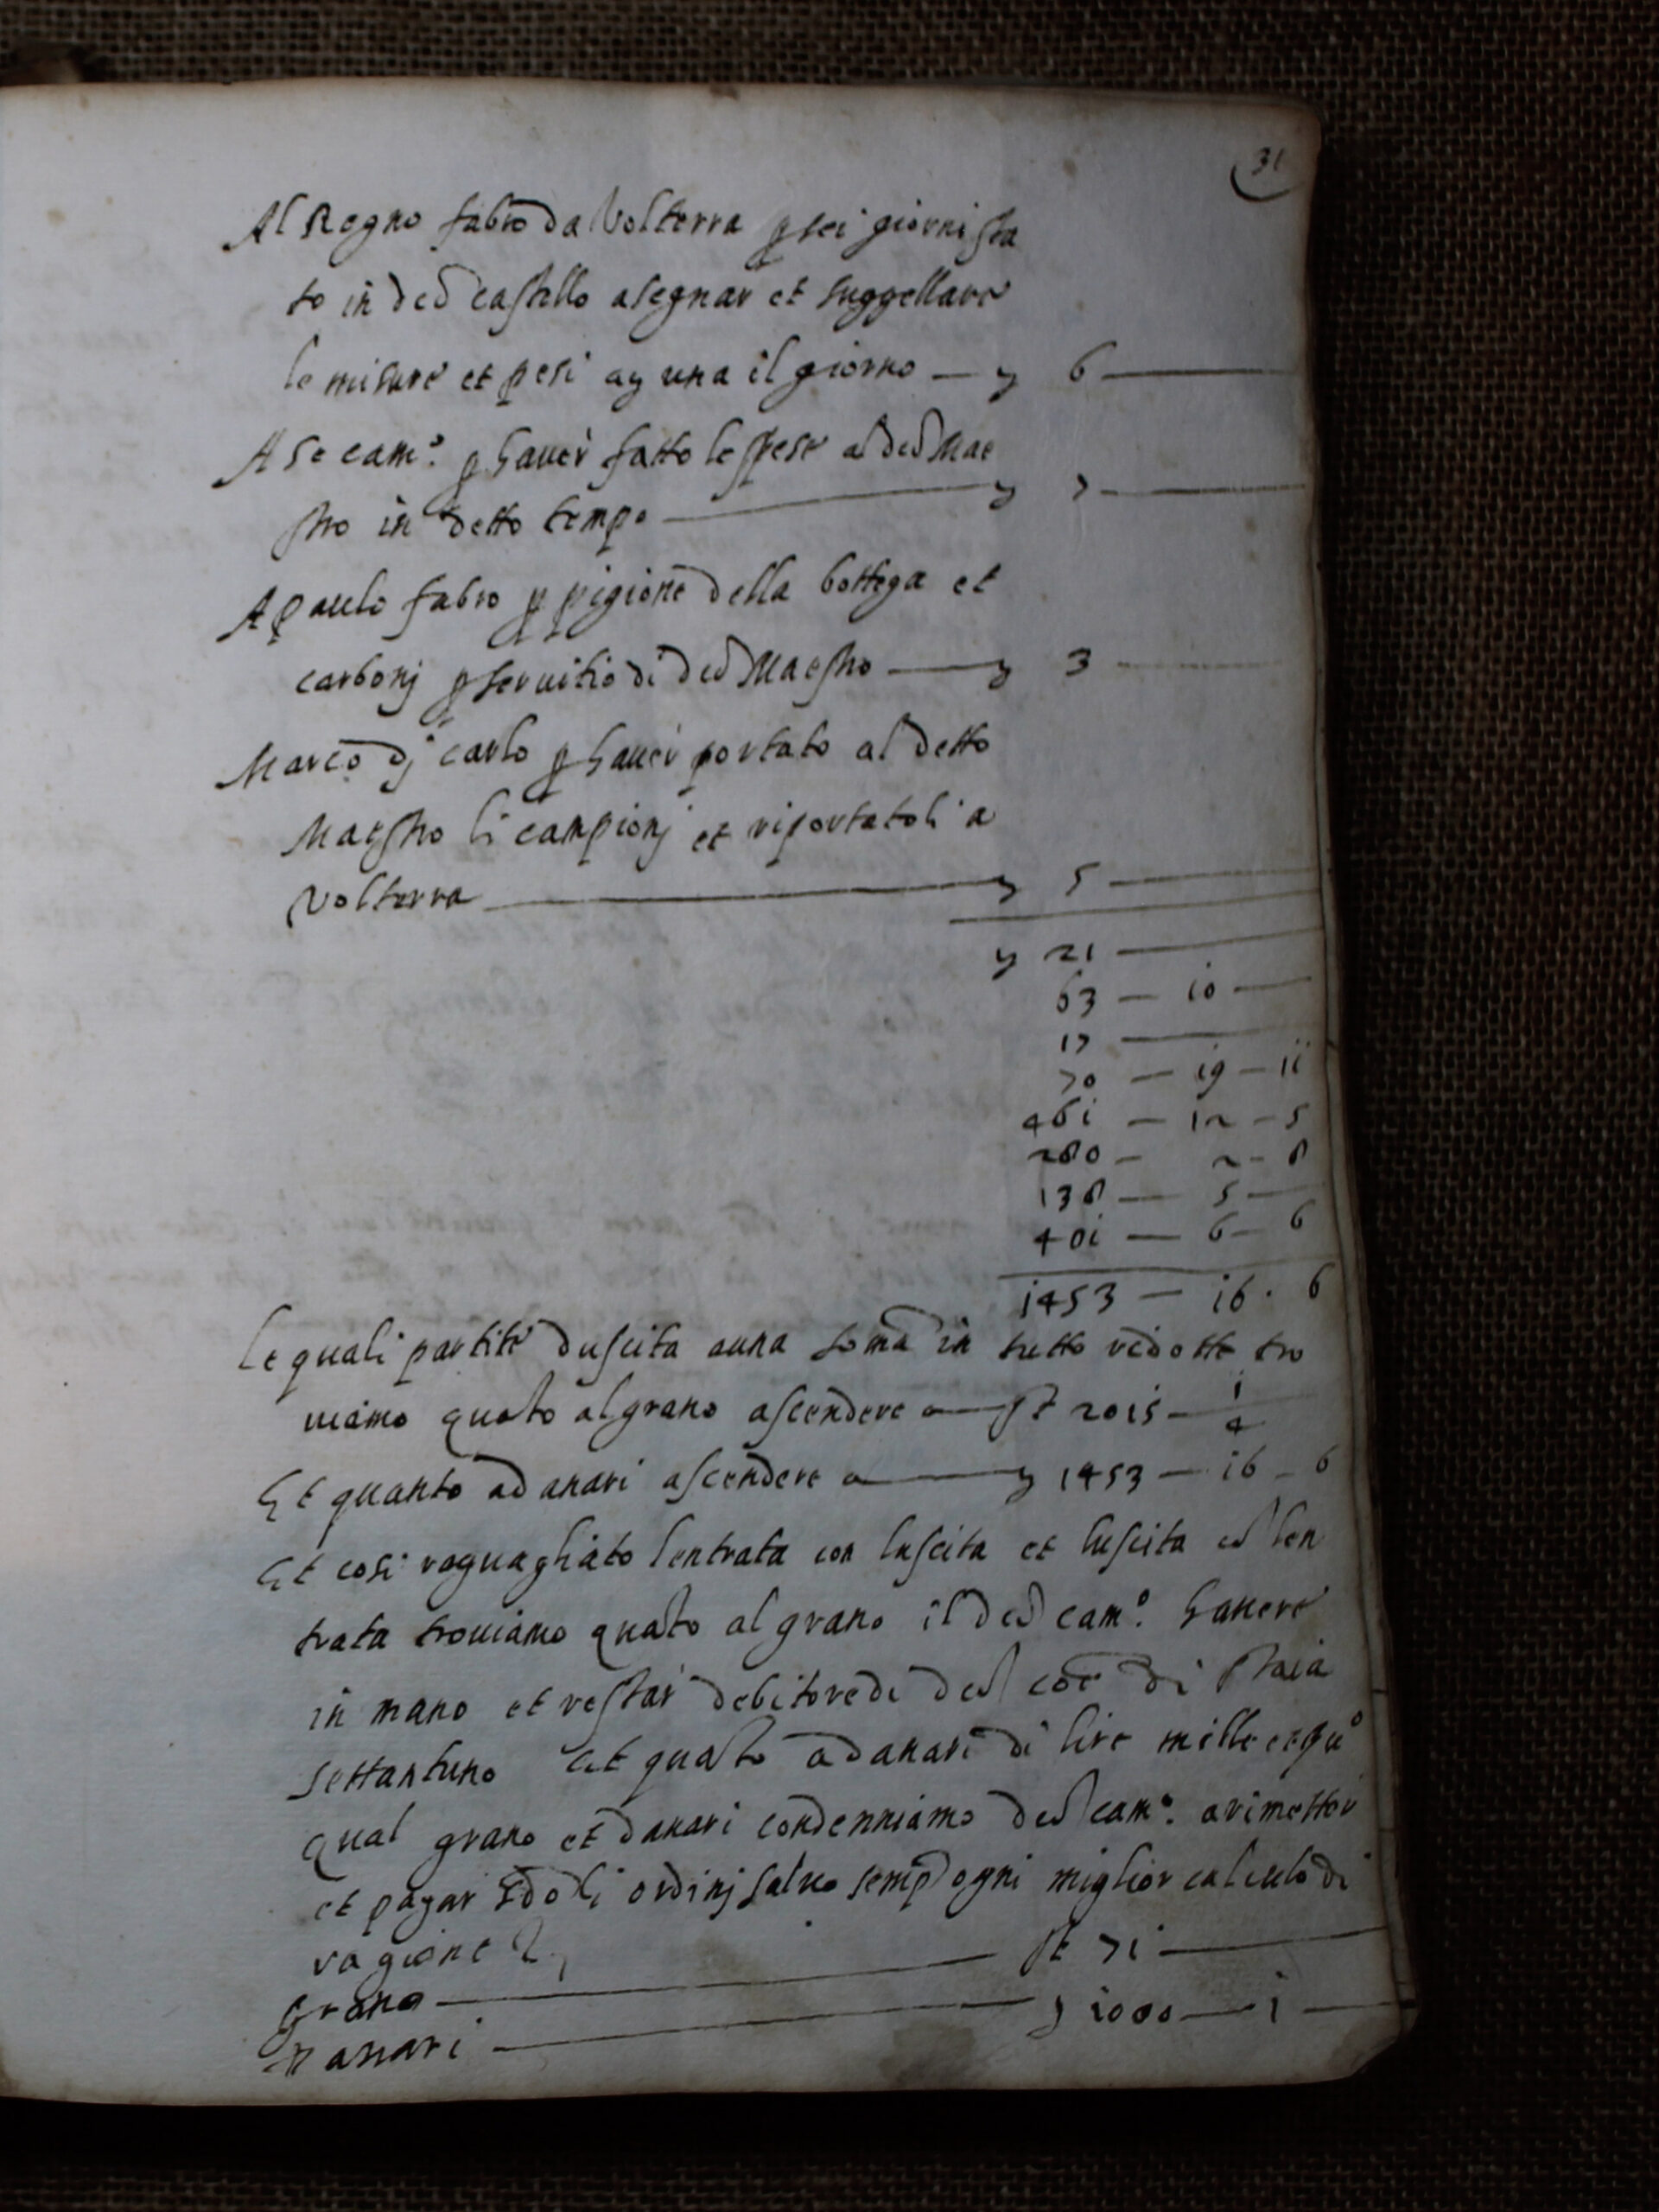 31
Al Regno fabro da Volterra p sei giorni sta
to in deo castello a segnar et suggellare
le misure et pesi a y una il giorno — y 6 —
A se cam.º p haver fatto le spese al deo Mae
stro in detto tempo — y 7 —
A paulo fabro p pigione della bottega et
carbonj p servitio di deo Maestro — y 3 —
Marco dj carlo p haver portato al detto
Maestro li campionj et riportatoli a
Volterra — y 5 —
y 21 —
63 — 10 —
17 —
70 — 19 — 11
461 — 12 — 5
280 — 2 — 8
138 — 5 —
401 — 6 — 6
1453 — 16 . 6
Le quali partite duscita a una soma in tutto ridotte tro
viamo quato al grano ascendere a — st 2015 — 1/4
Et quanto a danari ascendere a — y 1453 — 16 — 6
Et cosi raguagliato lentrata con luscita et luscita co len
trata troviamo quato al grano il deo cam.º havere
in mano et restar debitore di deo coe di staia
settantuno et quato a danari di lire mille et pº
qual grano et danari condenniamo deo cam.º a rimetter
et pagar sdo li ordinj salvo semp ogni miglior calculo di
ragione
Grano — st 71 —
Danari — y 1000 — 1 —